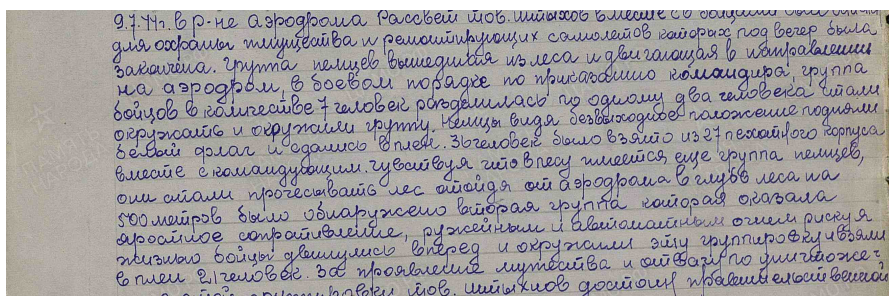 9.7.44г. в р-не аэродрома Рассвет тов. Штыхов вместе с бойцами был
для охраны имущества и ремонтирующих самолетов которых под вечер была
закончена. Группа немцев вышедшая из леса и двигающая в направлении
на аэродром, в боевом порядке по приказанию командира, группа
бойцов в количестве 7 человек разделилась по одному два человека стали
окружать и окружили группу. Немцы видя безвыходное положение подняли
белый флаг и сдались в плен. 36 человек было взято из 27 пехотного корпуса
вместе с командующим. Чувствуя что в лесу имеется еще группа немцев,
они стали прочесывать лес отойдя от аэродрома в глубь леса на
500 метров было обнаружено вторая группа которая оказала
яростное сопративление, ружейным и автоматным огнем рискуя
жизнью бойцы двинулись вперед и окружили эту группировку и взяли
в плен 21 человек. За проявление мужества и отваги по уничтоже-
тов. Штыхов достоин правительственной